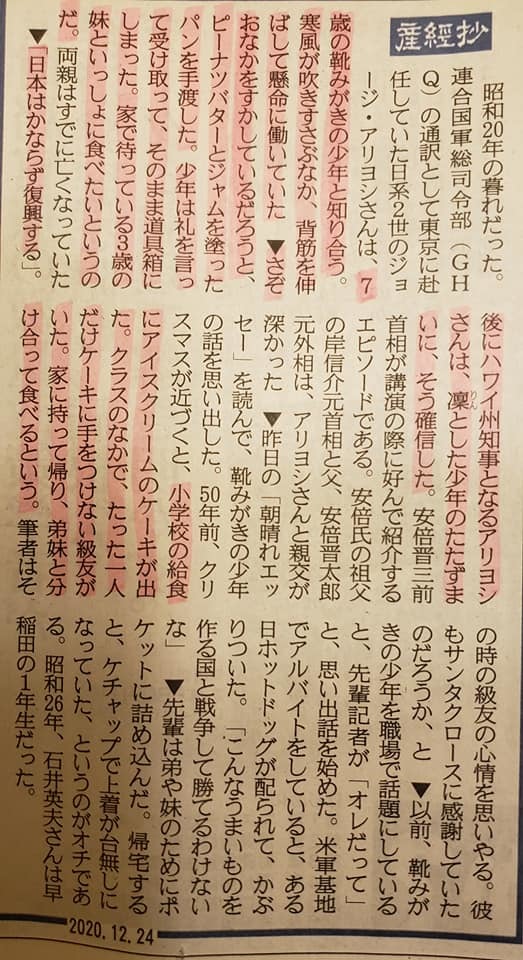 産經抄
昭和20年の暮れだった。
連合国軍総司令部（GH
Q）の通訳として東京に赴
任していた日系2世のジョ
ージ・アリヨシさんは、7
歳の靴みがきの少年と知り合う。
寒風が吹きすさぶなか、背筋を伸
ばして懸命に働いていた ▼さぞ
おなかをすかしているだろうと、
ピーナツバターとジャムを塗った
パンを手渡した。少年は礼を言っ
て受け取って、そのまま道具箱に
しまった。家で待っている3歳の
妹といっしょに食べたいというの
だ。両親はすでに亡くなっていた
▼「日本はかならず復興する」。
後にハワイ州知事となるアリヨシ
さんは、凜とした少年のたたずま
りん
いに、そう確信した。安倍晋三前
首相が講演の際に好んで紹介する
エピソードである。安倍氏の祖父
の岸信介元首相と父、安倍晋太郎
元外相は、アリヨシさんと親交が
深かった ▼昨日の「朝晴れエッ
セー」を読んで、靴みがきの少年
の話を思い出した。50年前、クリ
スマスが近づくと、小学校の給食
にアイスクリームのケーキが出
た。クラスのなかで、たった一人
だけケーキに手をつけない級友が
いた。家に持って帰り、弟妹と分
け合って食べるという。筆者はそ
の時の級友の心情を思いやる。彼
もサンタクロースに感謝していた
のだろうか、と ▼以前、靴みが
きの少年を職場で話題にしている
と、先輩記者が「オレだって」
と、思い出話を始めた。米軍基地
でアルバイトをしていると、ある
日ホットドッグが配られて、かぶ
りついた。「こんなうまいものを
作る国と戦争して勝てるわけない
な」 ▼先輩は弟や妹のためにポ
ケットに詰め込んだ。帰宅する
と、ケチャップで上着が台無しに
なっていた、というのがオチであ
る。昭和26年、石井英夫さんは早
稲田の1年生だった。
2020.12.24